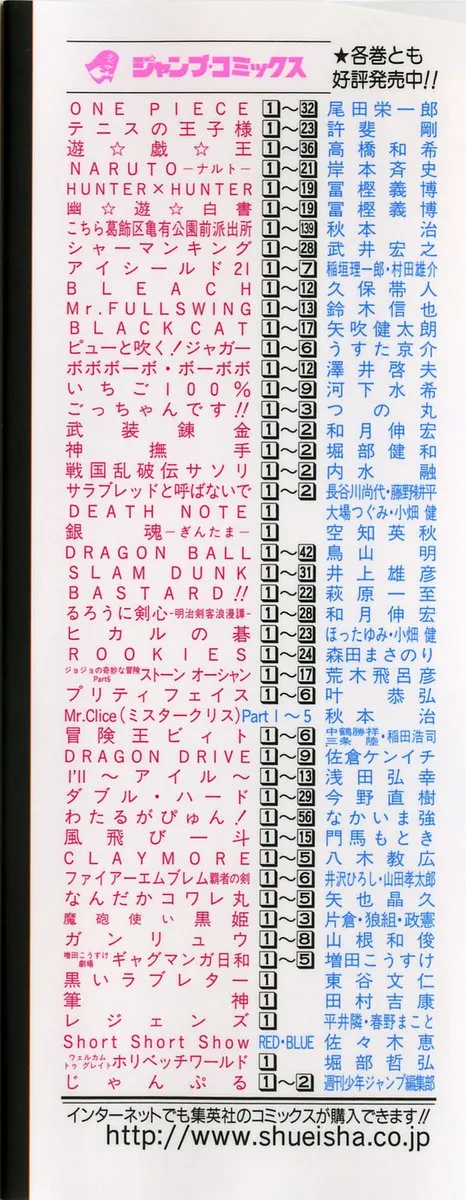 ジャンプ・コミックス
★各巻とも
好評発売中!!
ONE PIECE 1～32 尾田栄一郎
テニスの王子様 1～23 許斐 剛
遊☆戯☆王 1～36 高橋和希
NARUTO―ナルト― 1～21 岸本斉史
HUNTER×HUNTER 1～19 冨樫義博
幽☆遊☆白書 1～19 冨樫義博
こちら葛飾区亀有公園前派出所 1～139 秋本 治
シャーマンキング 1～28 武井宏之
アイシールド21 1～7 稲垣理一郎・村田雄介
BLEACH 1～12 久保帯人
Mr.FULLSWING 1～13 鈴木信也
BLACK CAT 1～17 矢吹健太朗
ピューと吹く!ジャガー 1～6 うすた京介
ボボボーボ・ボーボボ 1～12 澤井啓夫
いちご100% 1～9 河下水希
ごっちゃんです!! 1～3 つの丸
武装錬金 1～2 和月伸宏
神撫手 1～2 堀部健和
戦国乱破伝サソリ 1～2 内水 融
サラブレッドと呼ばないで 1～2 長谷川尚代・藤野耕平
DEATH NOTE 1 大場つぐみ・小畑 健
銀魂―ぎんたま― 1 空知英秋
DRAGON BALL 1～42 鳥山 明
SLAM DUNK 1～31 井上雄彦
BASTARD!! 1～22 萩原一至
るろうに剣心-明治剣客浪漫譚- 1～28 和月伸宏
ヒカルの碁 1～23 ほったゆみ・小畑 健
ROOKIES 1～24 森田まさのり
ジョジョの奇妙な冒険 Part6 ストーン オーシャン 1～17 荒木飛呂彦
プリティフェイス 1～6 叶 恭弘
Mr.Clice(ミスタークリス)Part 1～5 秋本 治
冒険王ビィト 1～6 三条 陸・稲田浩司
DRAGON DRIVE 1～9 佐倉ケンイチ
I'll～アイル～ 1～13 浅田弘幸
ダブル・ハード 1～29 今野直樹
わたるがぴゅん! 1～56 なかいま強
風飛び一斗 1～15 門馬もとき
CLAYMORE 1～5 八木教広
ファイアーエムブレム覇者の剣 1～6 井沢ひろし・山田孝太郎
なんだかコワレ丸 1～5 矢也晶久
魔砲使い黒姫 1～3 片倉・狼組・政憲
ガンリュウ 1～8 山根和俊
増田こうすけ劇場 ギャグマンガ日和 1～5 増田こうすけ
黒いラブレター 1 東谷文仁
筆神 1 田村吉康
レジェンズ 1 平井隣・春野まこと
Short Short Show RED・BLUE 佐々木恵
ウェルカム トゥ グレイト ホリベッチワールド 1 堀部哲弘
じゃんぷる 1～2 週刊少年ジャンプ編集部
インターネットでも集英社のコミックスが購入できます!!
http://www.shueisha.co.jp